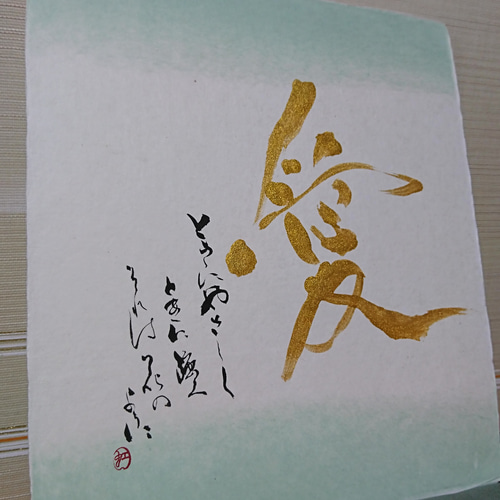 愛
ときにやさしく
ときに強く
それは花の
ように